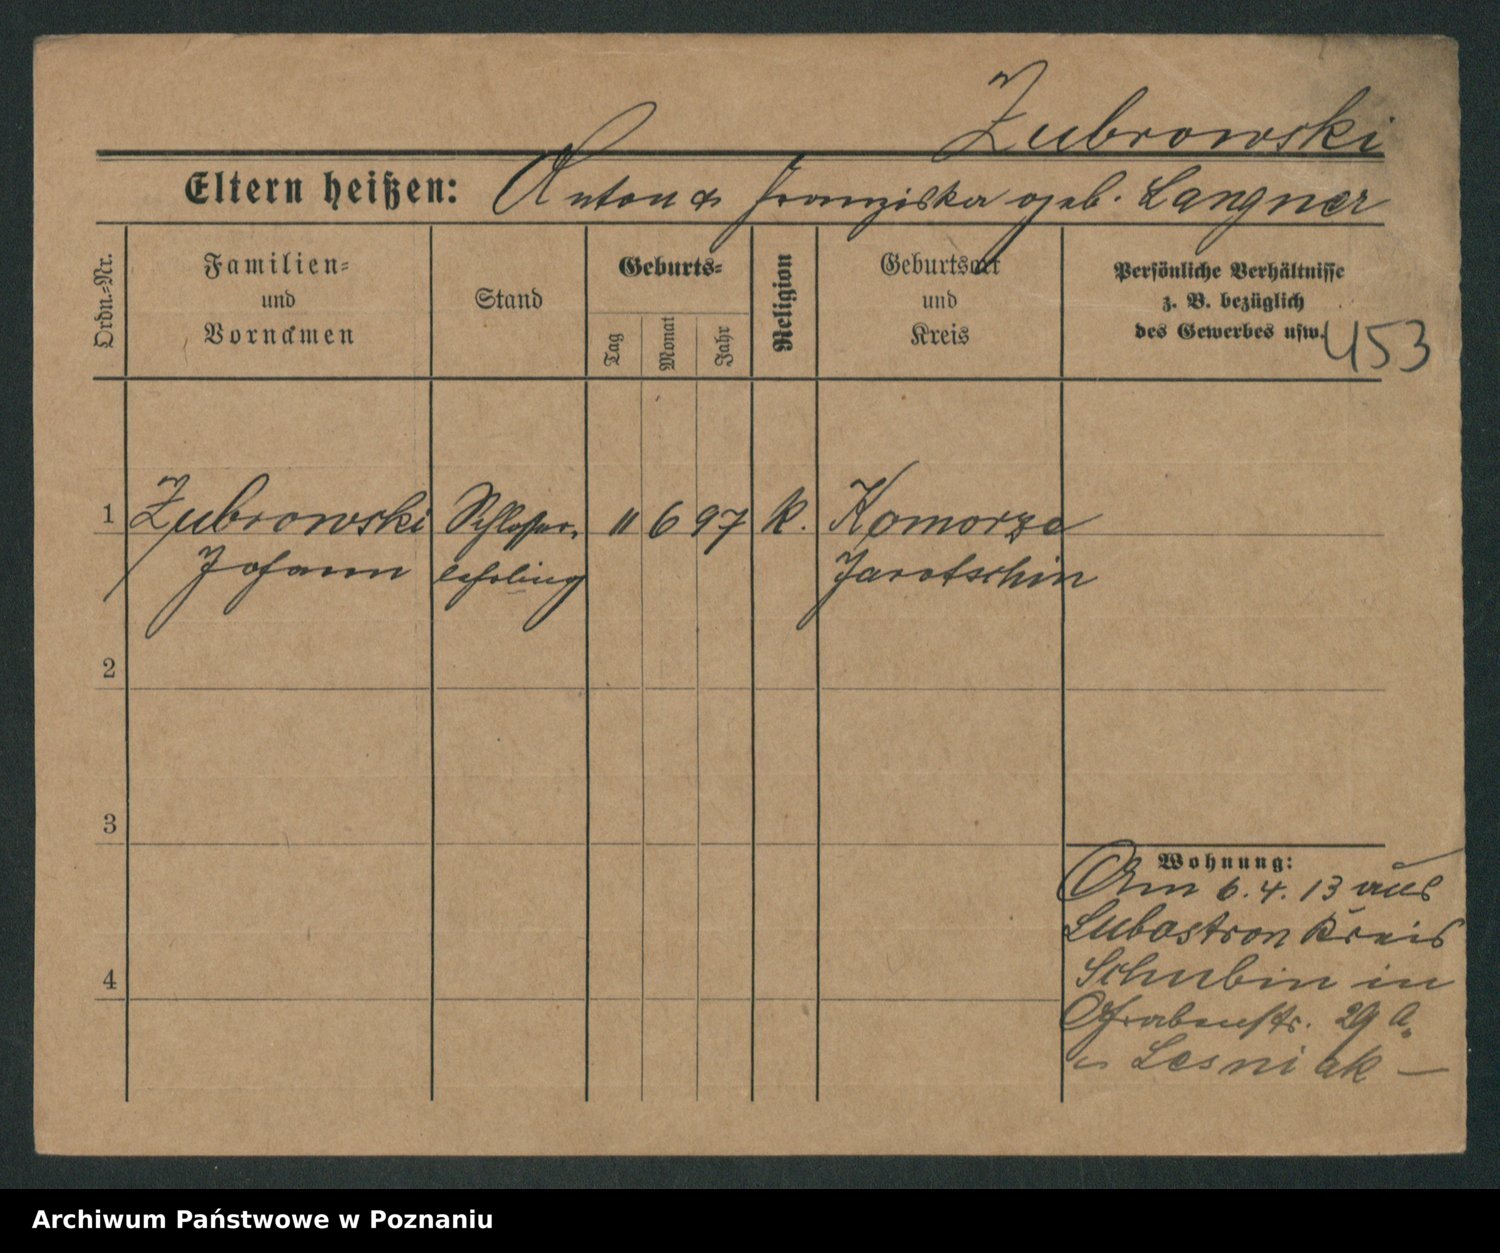 Zubrowski
Eltern heißen: Anton & Franziska geb. Langner
Ordn.-Nr.
Familien-
und
Vornamen
Stand
Geburts-
Tag
Monat
Jahr
Religion
Geburtsort
und
Kreis
Persönliche Verhältnisse
z. B. bezüglich
des Gewerbes usw.
453
1 Zubrowski Schlosser- 11 6 97 k. Komorze
Johann lehrling Jarotschin
2
3
4
Wohnung:
Am 6.4.13 aus
Lubostron Kreis
Schubin in
Grabenstr. 29 a
Lesniak —
Archiwum Państwowe w Poznaniu